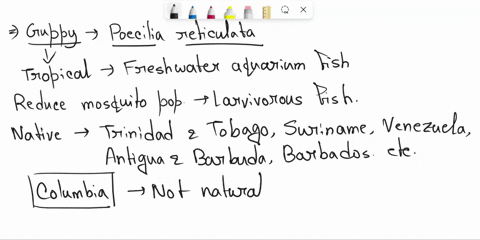 ⇒ Guppy → Poecilia reticulata
Tropical → Freshwater aquarium Fish
Reduce mosquito pop → Larvivorous Fish.
Native → Trinidad & Tobago, Suriname, Venezuela,
Antigua & Barbuda, Barbados. etc.
Columbia → Not natural